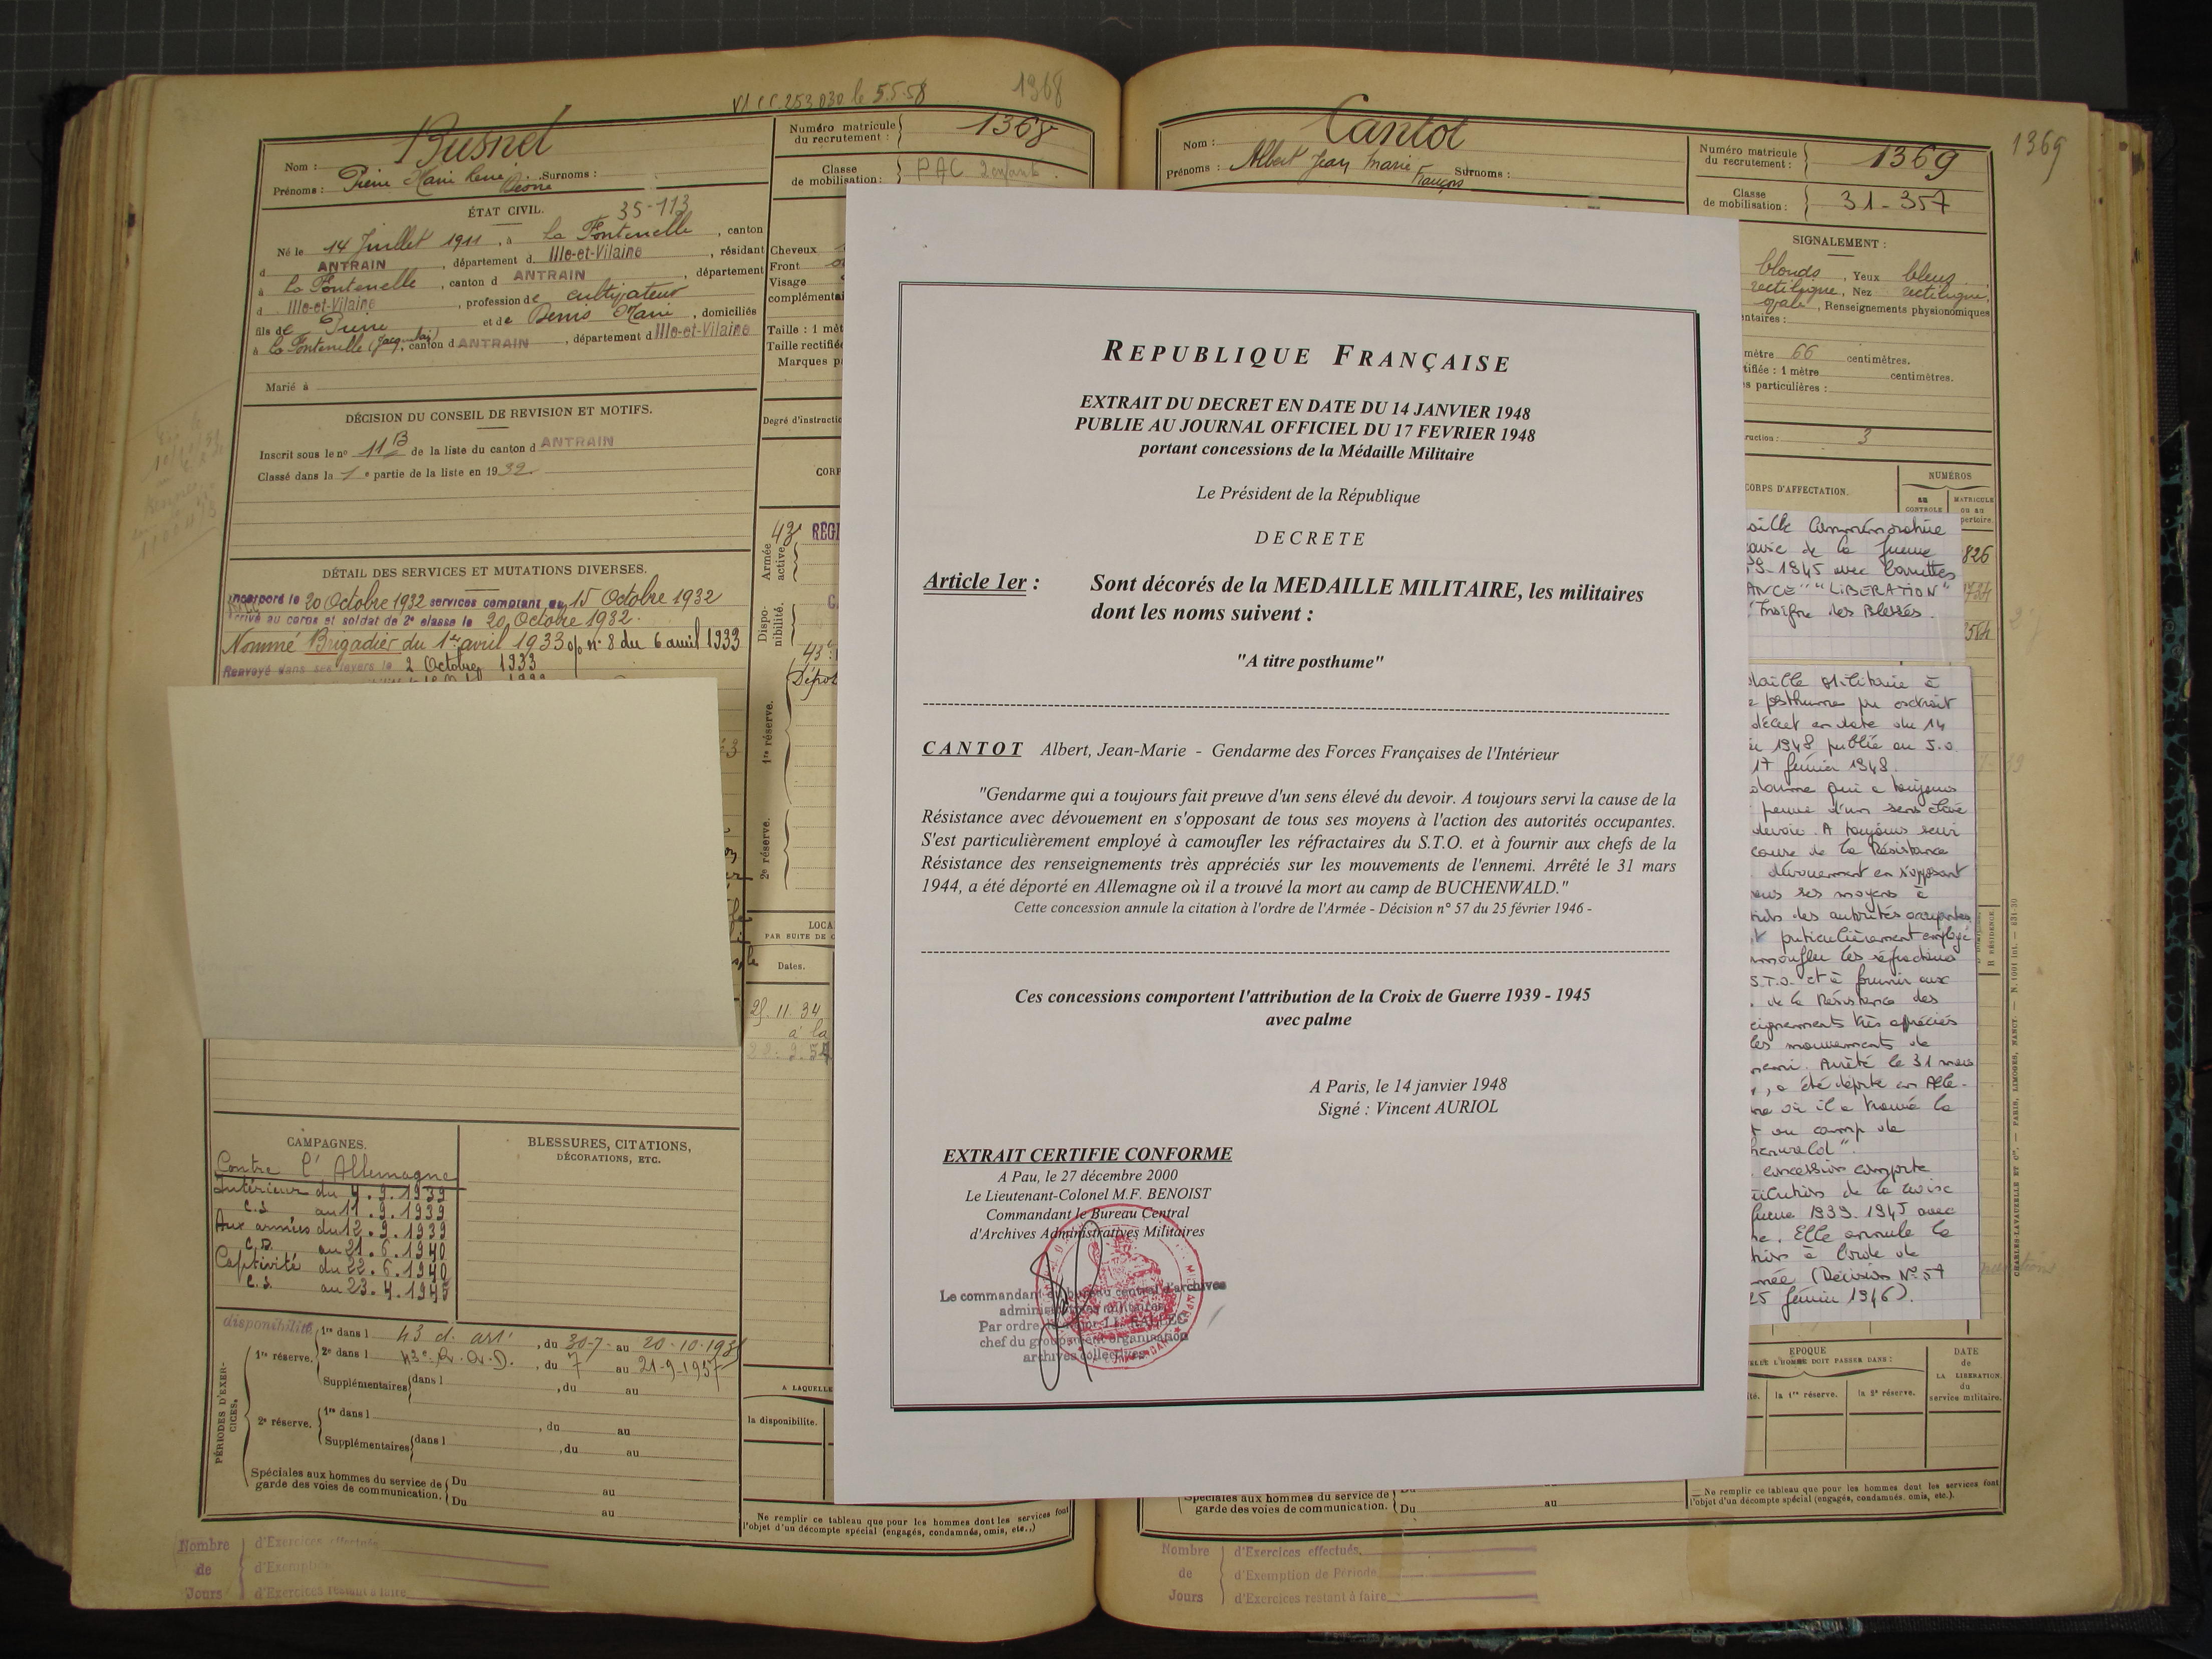 VI CC 253 030 le 5.5.58
1368
Nom : Busnel
Prénoms : Pierre Marie René Léone Surnoms :
Numéro matricule du recrutement : 1368
Classe de mobilisation : PAC 2 enfants
ÉTAT CIVIL.
35-113
Né le 14 Juillet 1911, à La Fontenelle, canton
d ANTRAIN, département d Ille-et-Vilaine, résidant
à La Fontenelle, canton d ANTRAIN, département
d Ille-et-Vilaine, profession de cultivateur
fils de Pierre et de Denis Marie, domiciliés
à La Fontenelle, canton d ANTRAIN, département d Ille-et-Vilaine
Marié à
Cheveux
Front
Visage
complémentai
Taille : 1 mèt
Taille rectifiée
Marques p
Degré d'instructio
DÉCISION DU CONSEIL DE REVISION ET MOTIFS.
Inscrit sous le nº 11 B de la liste du canton d ANTRAIN
Classé dans la 1e partie de la liste en 1932
CORP
DÉTAIL DES SERVICES ET MUTATIONS DIVERSES.
Incorporé le 20 Octobre 1932 services comptant du 15 Octobre 1932
Arrivé au corps et soldat de 2e classe le 20 Octobre 1932.
Nommé Brigadier du 1er avril 1933 o/o nº 8 du 6 avril 1933
Renvoyé dans ses foyers le 2 Octobre 1933
Armée active.
43e RÉGI
Disponibilité.
1re réserve.
43e
Dépot
2e réserve.
LOCA
PAR SUITE DE C
Dates.
25.11.34
à la
CAMPAGNES.
Contre l'Allemagne
Intérieur du 4.9.1939
C.S. au 11.9.1939
Aux armées du 12.9.1939
C.D. au 21.6.1940
Captivité du 22.6.1940
C.S. au 23.4.1945
BLESSURES, CITATIONS,
DÉCORATIONS, ETC.
PÉRIODES D'EXERCICES.
disponibilité
1re réserve.
1re dans l 43 d. art, du 30-7- au 20-10-1935
2e dans l 43e R.A.D., du 7 au 21-9-1937
Supplémentaires dans l , du au
2e réserve.
1re dans l , du au
Supplémentaires dans l , du au
Spéciales aux hommes du service de garde des voies de communication. Du au
Du au
A LAQUELLE
la disponibilité.
Ne remplir ce tableau que pour les hommes dont les services font
l'objet d'un décompte spécial (engagés, condamnés, omis, etc.,)
Nombre de Jours
d'Exercices effectués
d'Exemption
d'Exercices restant à faire
1369
Nom : Cantot
Prénoms : Albert Jean Marie François Surnoms :
Numéro matricule du recrutement : 1369
Classe de mobilisation : 31-357
SIGNALEMENT :
blonds, Yeux bleus
rectiligne, Nez rectiligne,
ovale, Renseignements physionomiques
entaires :
mètre 66 centimètres.
tifiée : 1 mètre centimètres.
s particulières :
ruction : 3
CORPS D'AFFECTATION.
NUMÉROS
au CONTROLE
MATRICULE ou au répertoire.
826
REPUBLIQUE FRANÇAISE
EXTRAIT DU DECRET EN DATE DU 14 JANVIER 1948
PUBLIE AU JOURNAL OFFICIEL DU 17 FEVRIER 1948
portant concessions de la Médaille Militaire
Le Président de la République
DECRETE
Article 1er : Sont décorés de la MEDAILLE MILITAIRE, les militaires
dont les noms suivent :
"A titre posthume"
CANTOT Albert, Jean-Marie - Gendarme des Forces Françaises de l'Intérieur
"Gendarme qui a toujours fait preuve d'un sens élevé du devoir. A toujours servi la cause de la
Résistance avec dévouement en s'opposant de tous ses moyens à l'action des autorités occupantes.
S'est particulièrement employé à camoufler les réfractaires du S.T.O. et à fournir aux chefs de la
Résistance des renseignements très appréciés sur les mouvements de l'ennemi. Arrêté le 31 mars
1944, a été déporté en Allemagne où il a trouvé la mort au camp de BUCHENWALD."
Cette concession annule la citation à l'ordre de l'Armée - Décision n° 57 du 25 février 1946 -
Ces concessions comportent l'attribution de la Croix de Guerre 1939 - 1945
avec palme
A Paris, le 14 janvier 1948
Signé : Vincent AURIOL
EXTRAIT CERTIFIE CONFORME
A Pau, le 27 décembre 2000
Le Lieutenant-Colonel M.F. BENOIST
Commandant le Bureau Central
d'Archives Administratives Militaires
Le commandant du bureau central d'archives
administratives militaires
Par ordre,
chef du groupement organisation
archives collectives
aille Commémorative
çaise de la Guerre
39-1945 avec barrettes
ANCE" "LIBERATION"
Insigne des Blessés.
daille Militaire à
e posthume par extrait
décret en date du 14
er 1948 publié au J.O.
17 février 1948.
darme qui a toujours
preuve d'un sens élevé
devoir. A toujours servi
cause de la Résistance
dévouement en s'opposant
ous ses moyens à
tion des autorités occupantes
t particulièrement employé
amoufler les réfractaires
S.T.O. et à fournir aux
de la Résistance des
eignements très appréciés
les mouvements de
nemi. Arrêté le 31 mars
, a été déporté en Alle-
ne où il a trouvé la
t au camp de
henwald".
concession comporte
ribution de la croix
Guerre 1939-1945 avec
me. Elle annule la
tion à l'ordre de
mée (Décision Nº 57
25 février 1946).
R RÉSIDENCE.
CHARLES-LAVAUZELLE ET Cie. — PARIS, LIMOGES, NANCY. — N. 1001 int. — 631-30
EPOQUE
ELLE L'HOMME DOIT PASSER DANS :
ité.
la 1re réserve.
la 2e réserve.
DATE de LA LIBERATION du service militaire.
Spéciales aux hommes du service de garde des voies de communication. Du
Du au
— Ne remplir ce tableau que pour les hommes dont les services font
l'objet d'un décompte spécial (engagés, condamnés, omis, etc.).
Nombre de Jours
d'Exercices effectués
d'Exemption de Période
d'Exercices restant à faire